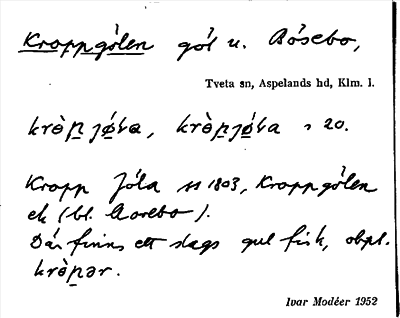 Kroppgölen göl u. Bösebo,
Tveta sn, Aspelands hd, Klm. l.
kròp̲jǿ̲la, kròp̲jǿ̲la > 20.
Kropp Jöla ss 1803, Kroppgölen
ek (bl. Boasebo).
Där finns ett slags gul fisk, obpl.
kròp̲ər.
Ivar Modéer 1952